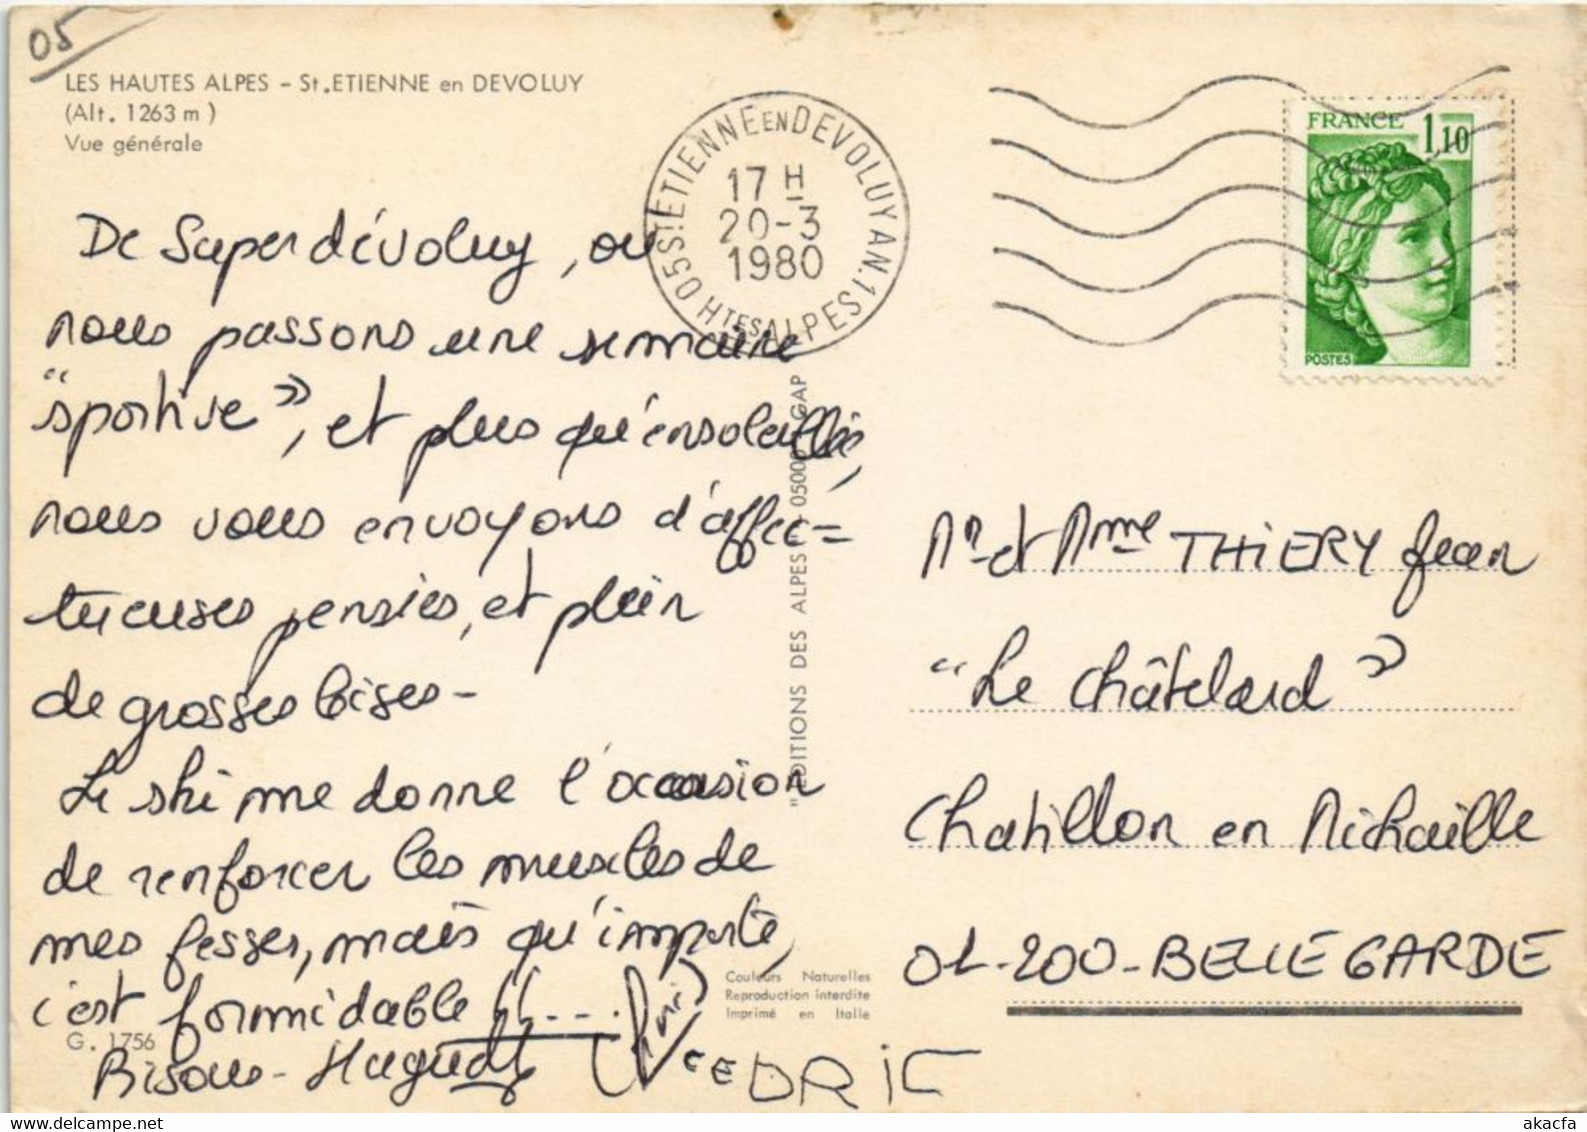 05
LES HAUTES ALPES - St.ETIENNE en DEVOLUY
(Alt. 1263 m)
Vue générale
05 ST ETIENNE EN DEVOLUY AN.1 HTES ALPES
17 H
20-3
1980
FRANCE 1,10
POSTES
De Superdévoluy, ou
nous passons une semaine
"sportive", et plus qu'ensoleillée,
nous vous envoyons d'affec=
tueuses pensées, et plein
de grosses bises-
Le ski me donne l'occasion
de renforcer les muscles de
mes fesses, mais qu'importe,
c'est formidable !! ...
Bisous - CEDRIC
"EDITIONS DES ALPES" - 05000 GAP
Mr et Mme THIERY Jean
"Le Châtelard"
Chatillon en Michaille
01-200-BELLEGARDE
Couleurs Naturelles
Reproduction interdite
Imprimé en Italie
G. 1756
www.delcampe.net
akacfa